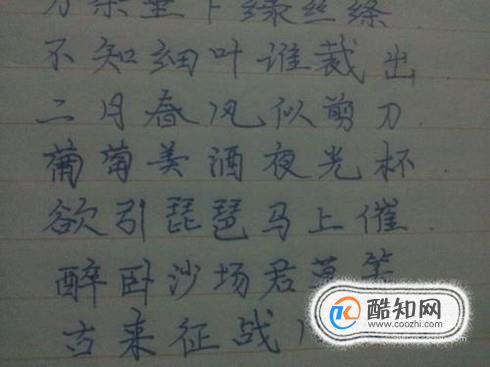 万条垂下绿丝绦
不知细叶谁裁出
二月春风似剪刀.
葡萄美酒夜光杯.
欲引琵琶马上催.
醉卧沙场君莫笑
古来征战
酷知网
www.coozhi.com